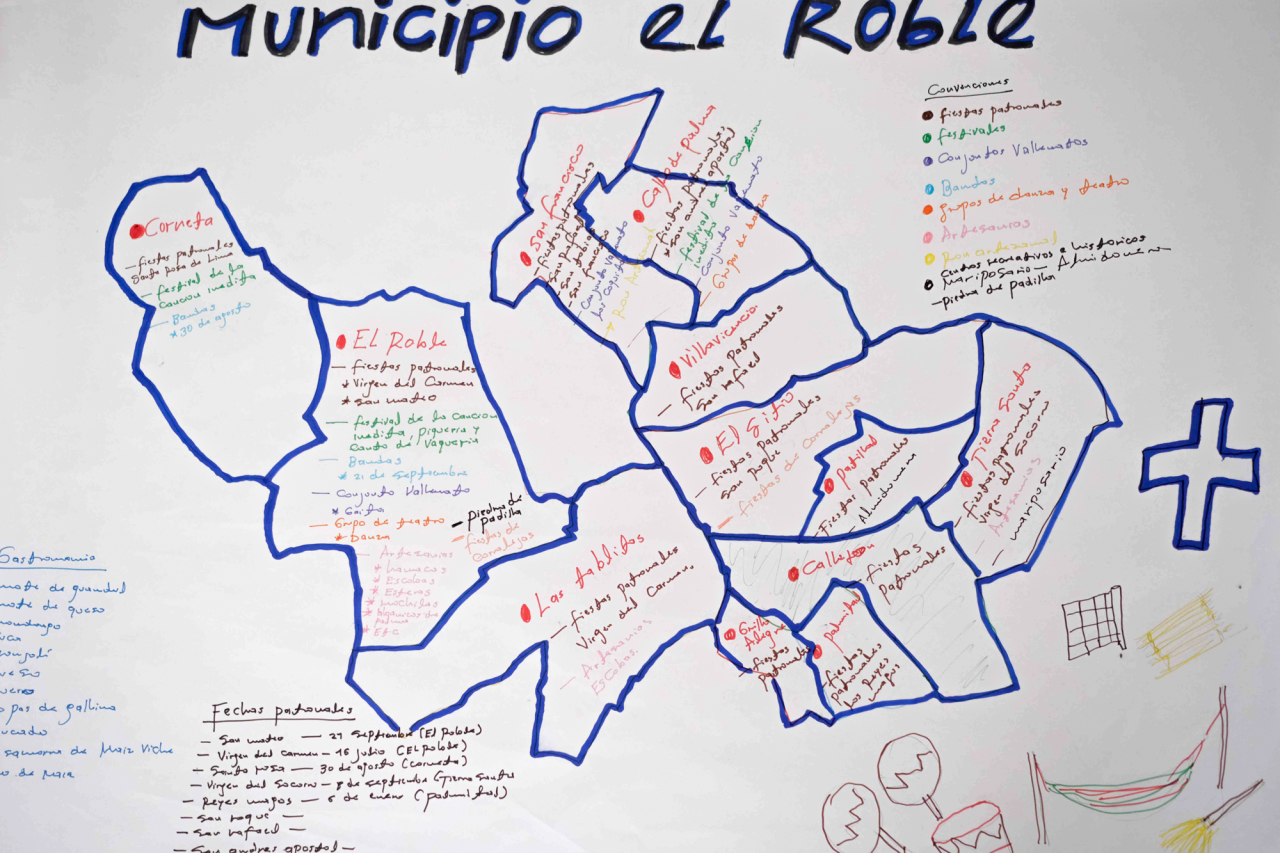 Municipio el Roble
Convenciones
fiestas patronales
festivales
Conjuntos Vallenatos
Bandas
grupos de danza y teatro
Artesanias
Ron artezanal
centros recreativos e historicos
Mariposario - Almidonera
- piedra de padilla
Corneta
- fiestas patronales
Santa Rosa de Lima
- festival de la
cancion inedita
- Bandas
* 30 de agosto
El Roble
- fiestas patronales
* Virgen del Carmen
* San mateo
- festival de la cancion
inedita, piqueria y
canto de Vaqueria
- Bandas
* 21 de septiembre
- Conjunto Vallenato
* Gaita
- Grupo de teatro
* Danza
- piedra de
padilla
- fiestas de
Corralejas
- Artesanias
* hamacas
* Escobas
* Esteras
* mochilas
palma
* Etc
San francisco
- fiestas patronales
- San Rafael
- San francisco
- Conjunto Vallenato
- Ron Artesanal
Callo de palma
- fiestas patronales
* San andres apostol
- festival de la Cancion
inedita
- Conjunto Vallenato
- Grupos de danza
Villavicencio
- fiestas patronales
San rafael
El Sitio
- fiestas patronales
San Roque
- fiestas de corralejas
Patillal
- fiestas Patronales
- Almidonera
Tierra Santa
- fiestas patronales
Virgen del Socorro
- Artesanias
- mariposario
Las tablitas
- fiestas patronales
Virgen del Carmen.
- Artesanias
Escobas.
Callejon
- fiestas
Patronales
Grillo
Alegre
- fiestas
Patronales
palmital
- fiestas
patronales
Los Reyes
magos
Gastronomia
mote de guandul
mote de queso
mondongo
de gallina
de Maiz Viche
de Maiz
Fechas patronales
- San mateo - 21 septiembre (El Roble)
- Virgen del carmen - 16 julio (El Roble)
- Santa rosa - 30 de agosto (corneta)
- Virgen del Socorro - 8 de septiembre (Tierra Santa
- Reyes magos - 6 de enero (palmital)
- San roque -
- San rafael -
- San andres apostol -